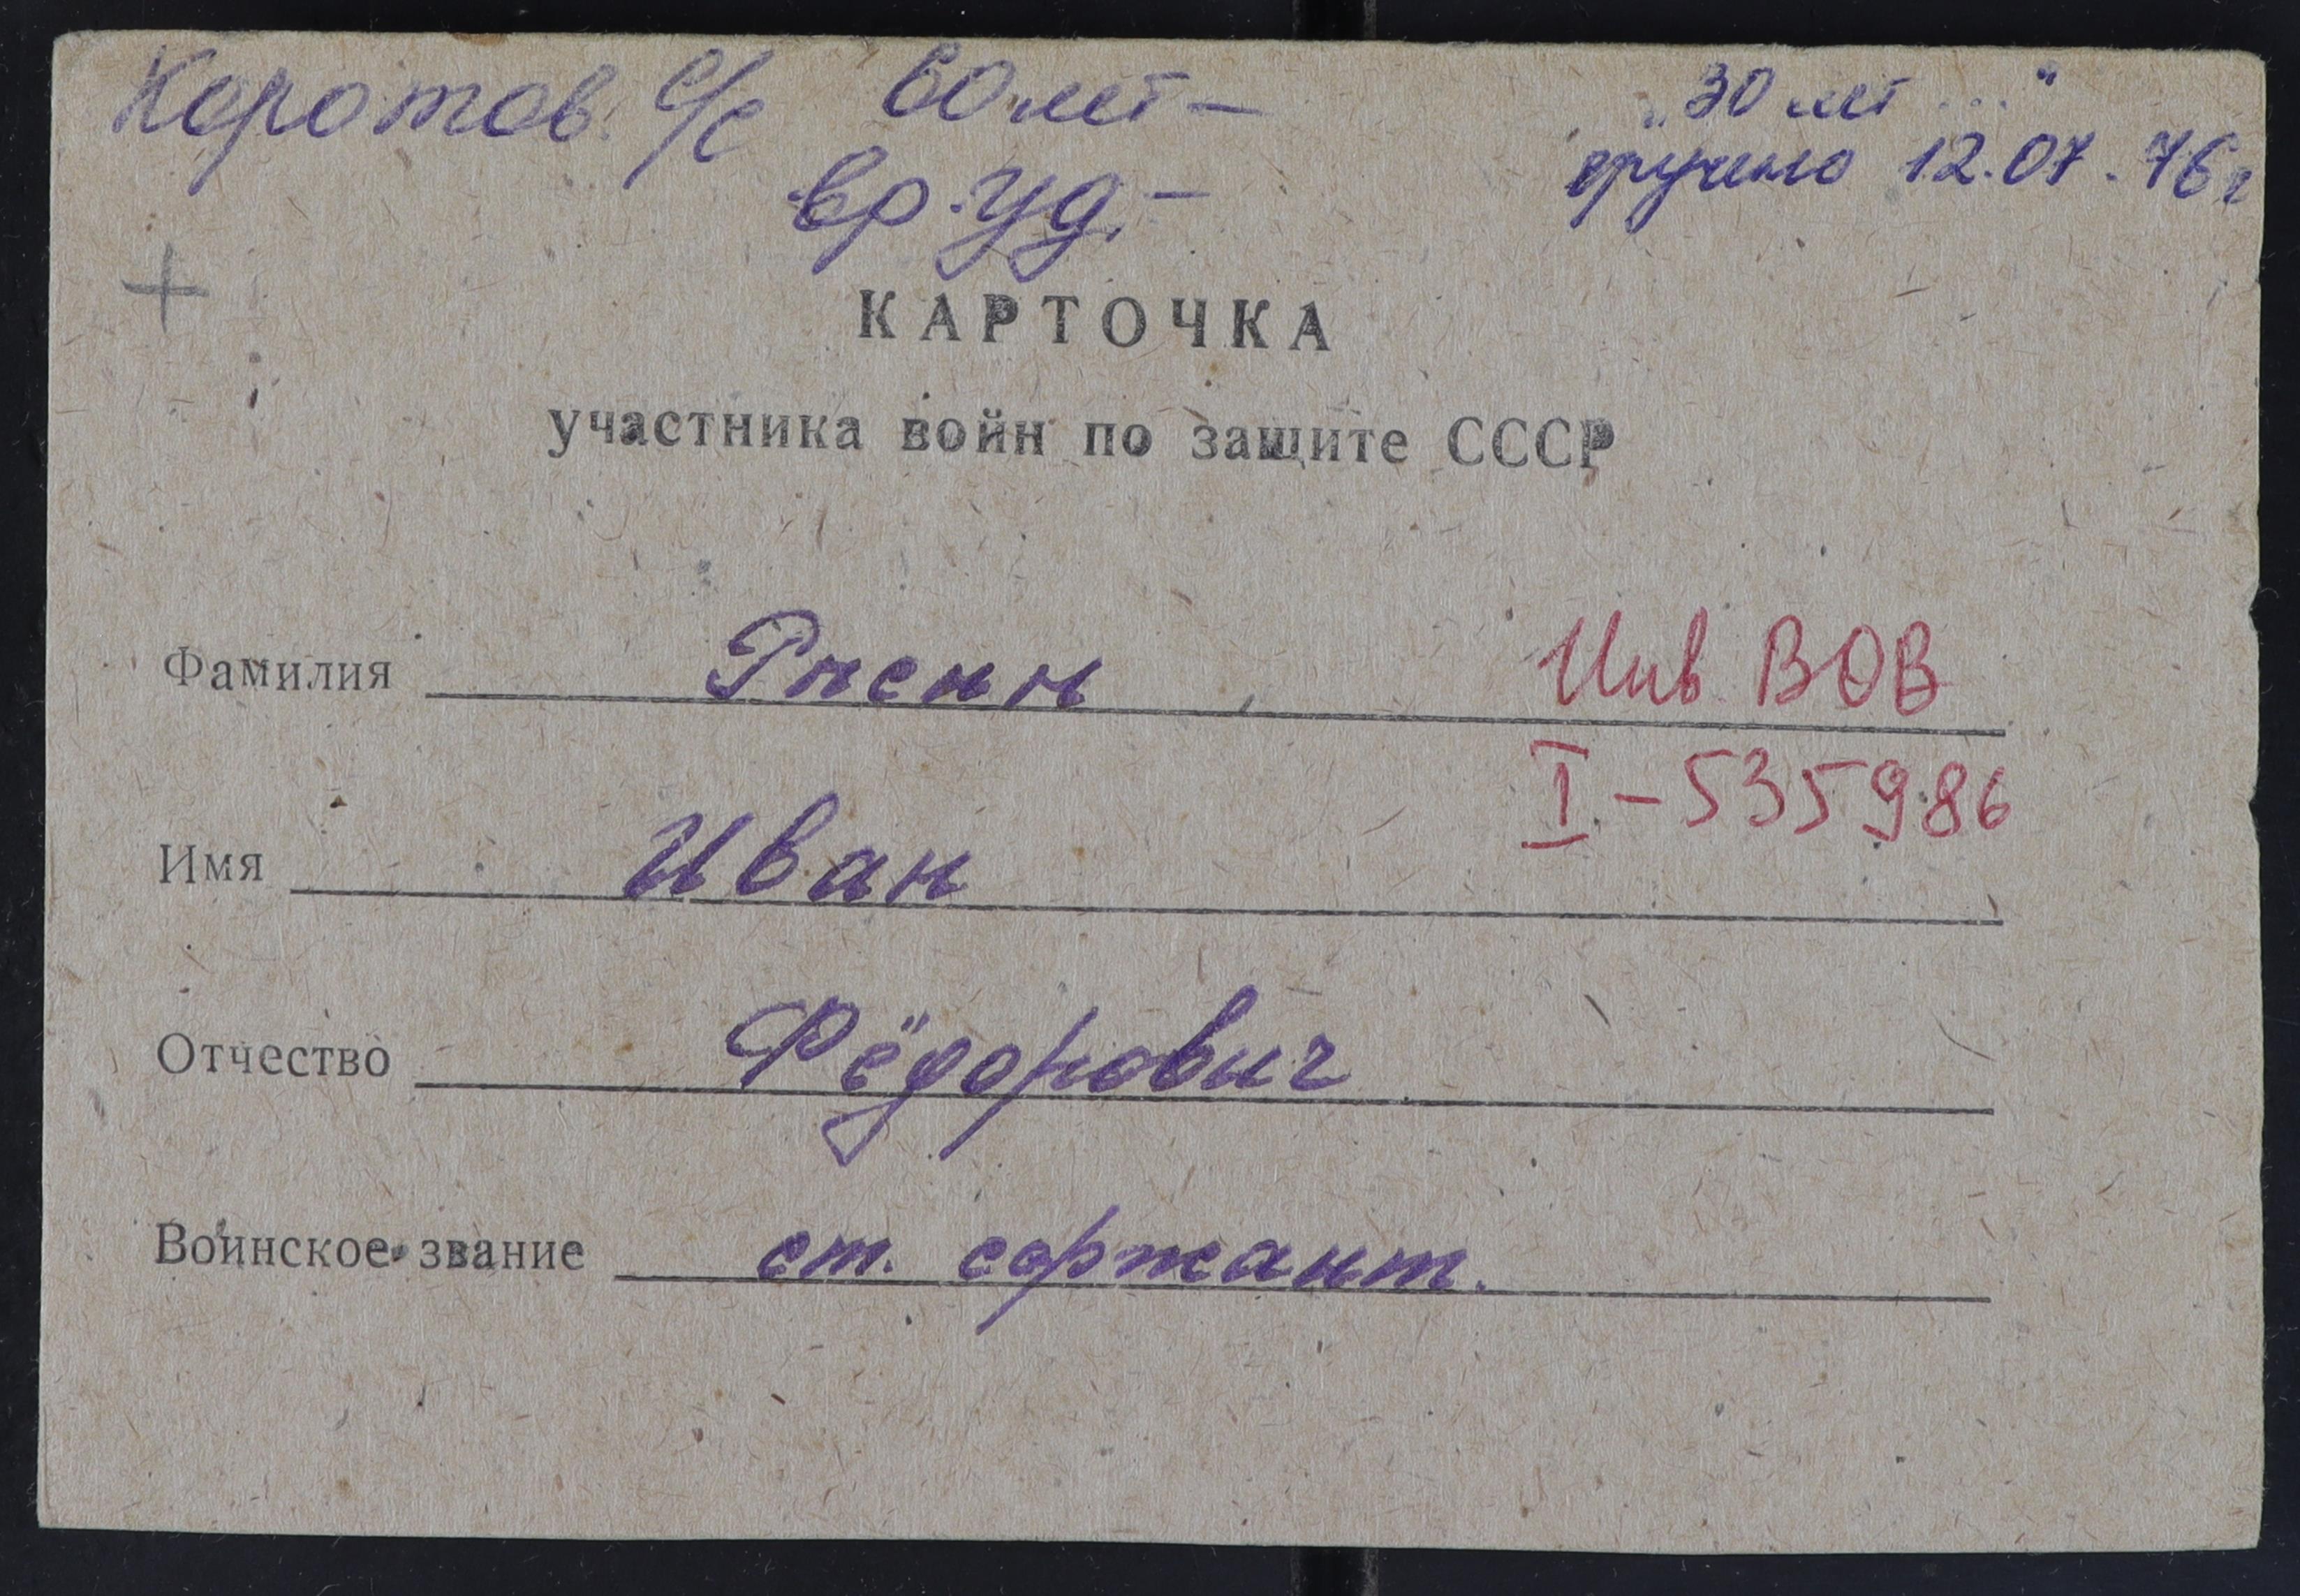 Коротов. С/С 60 лет –
вр. уд. –
„30 лет ..."
вручено 12.07.76 г
КАРТОЧКА
участника войн по защите СССР
Фамилия
Инв ВОВ
I – 535986
Имя Иван
Отчество Фёдорович
Воинское звание ст. сержант.